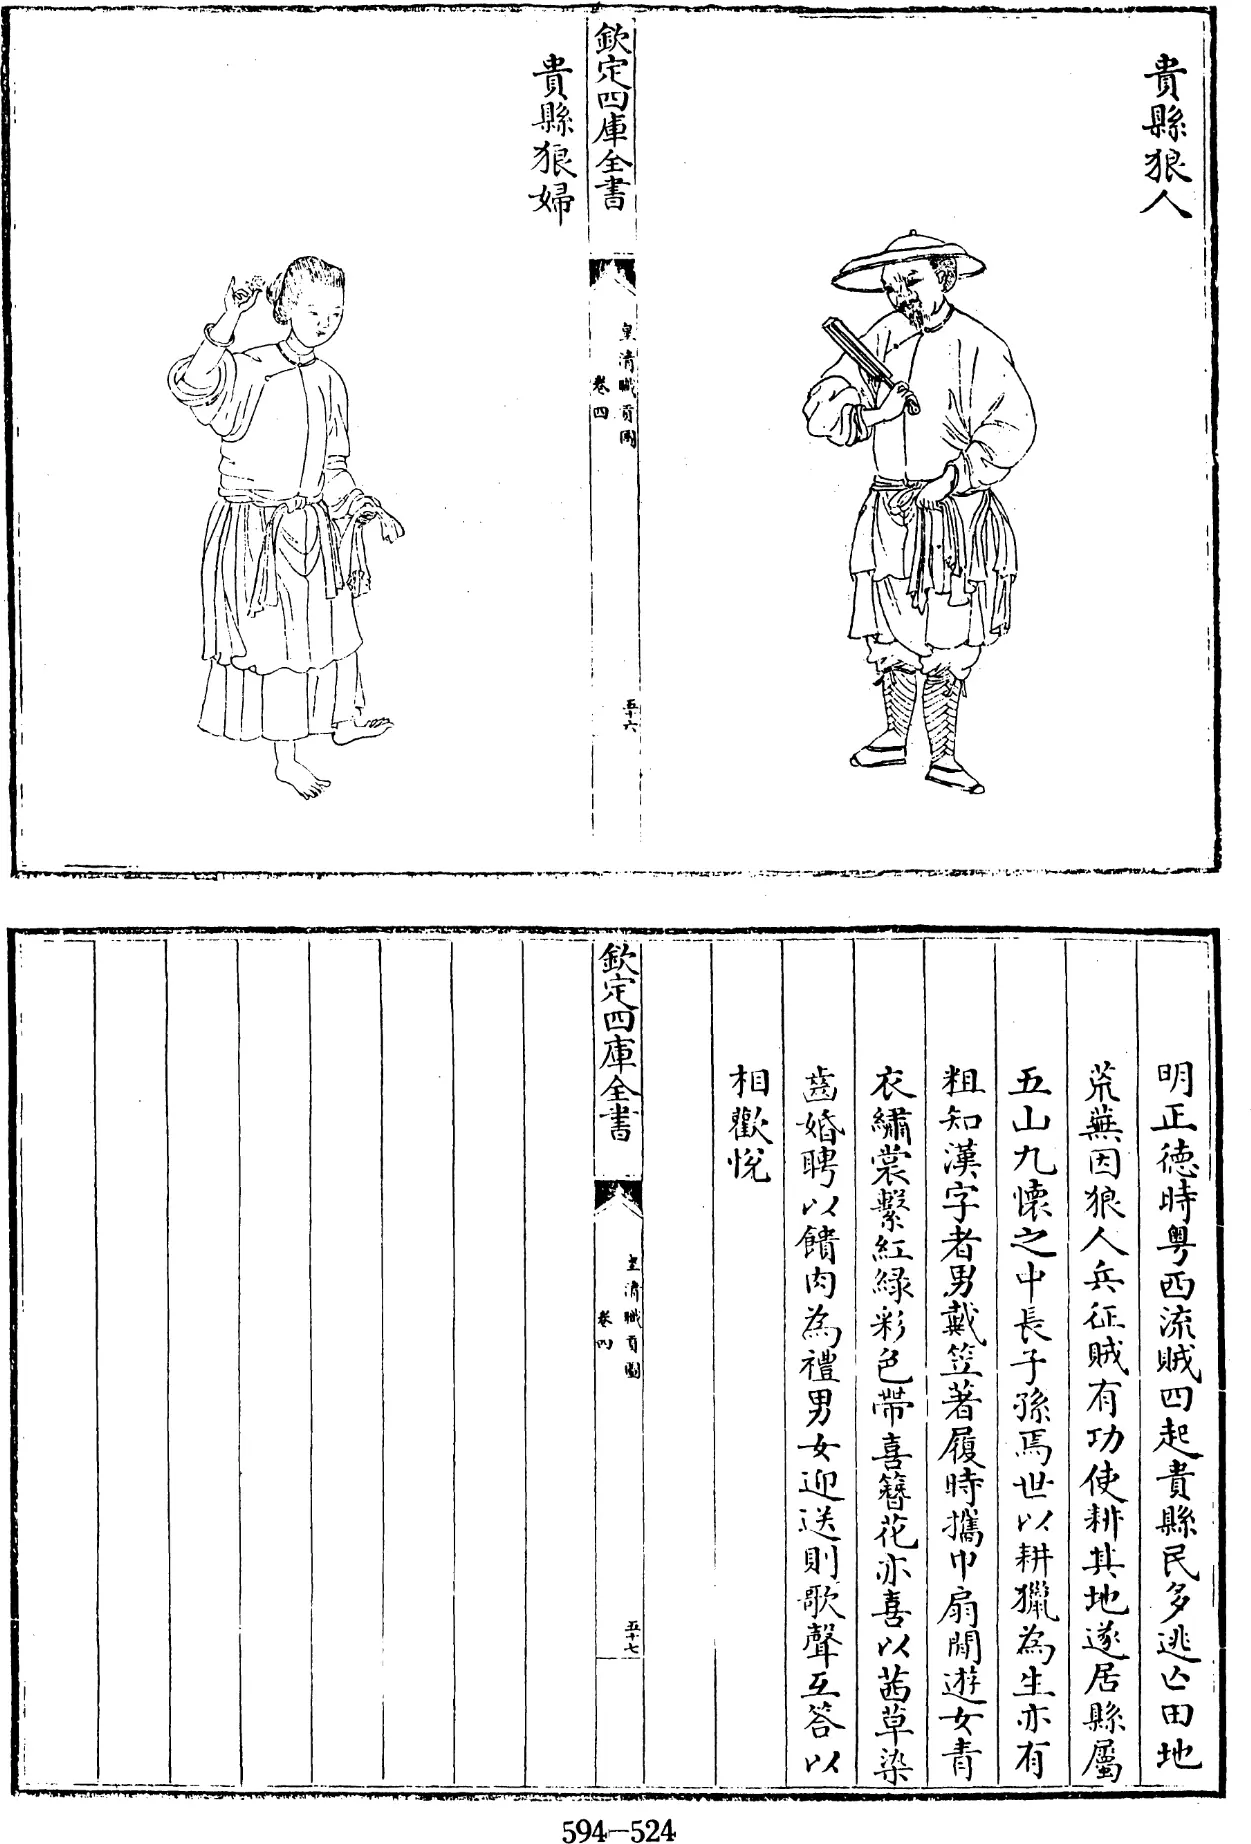 貴縣狼人
欽定四庫全書
皇清職貢圖
卷四
五十六
貴縣狼婦
明正德時粤西流賊四起貴縣民多逃亡田地
荒蕪因狼人兵征賊有功使耕其地遂居縣屬
五山九懷之中長子孫焉世以耕獵為生亦有
粗知漢字者男戴笠著履時攜巾扇閒遊女青
衣繡裳繫紅綠彩色帶喜簪花亦喜以茜草染
齒婚聘以饋肉為禮男女迎送則歌聲互答以
相歡悅
欽定四庫全書
皇清職貢圖
卷四
五十七
594-524